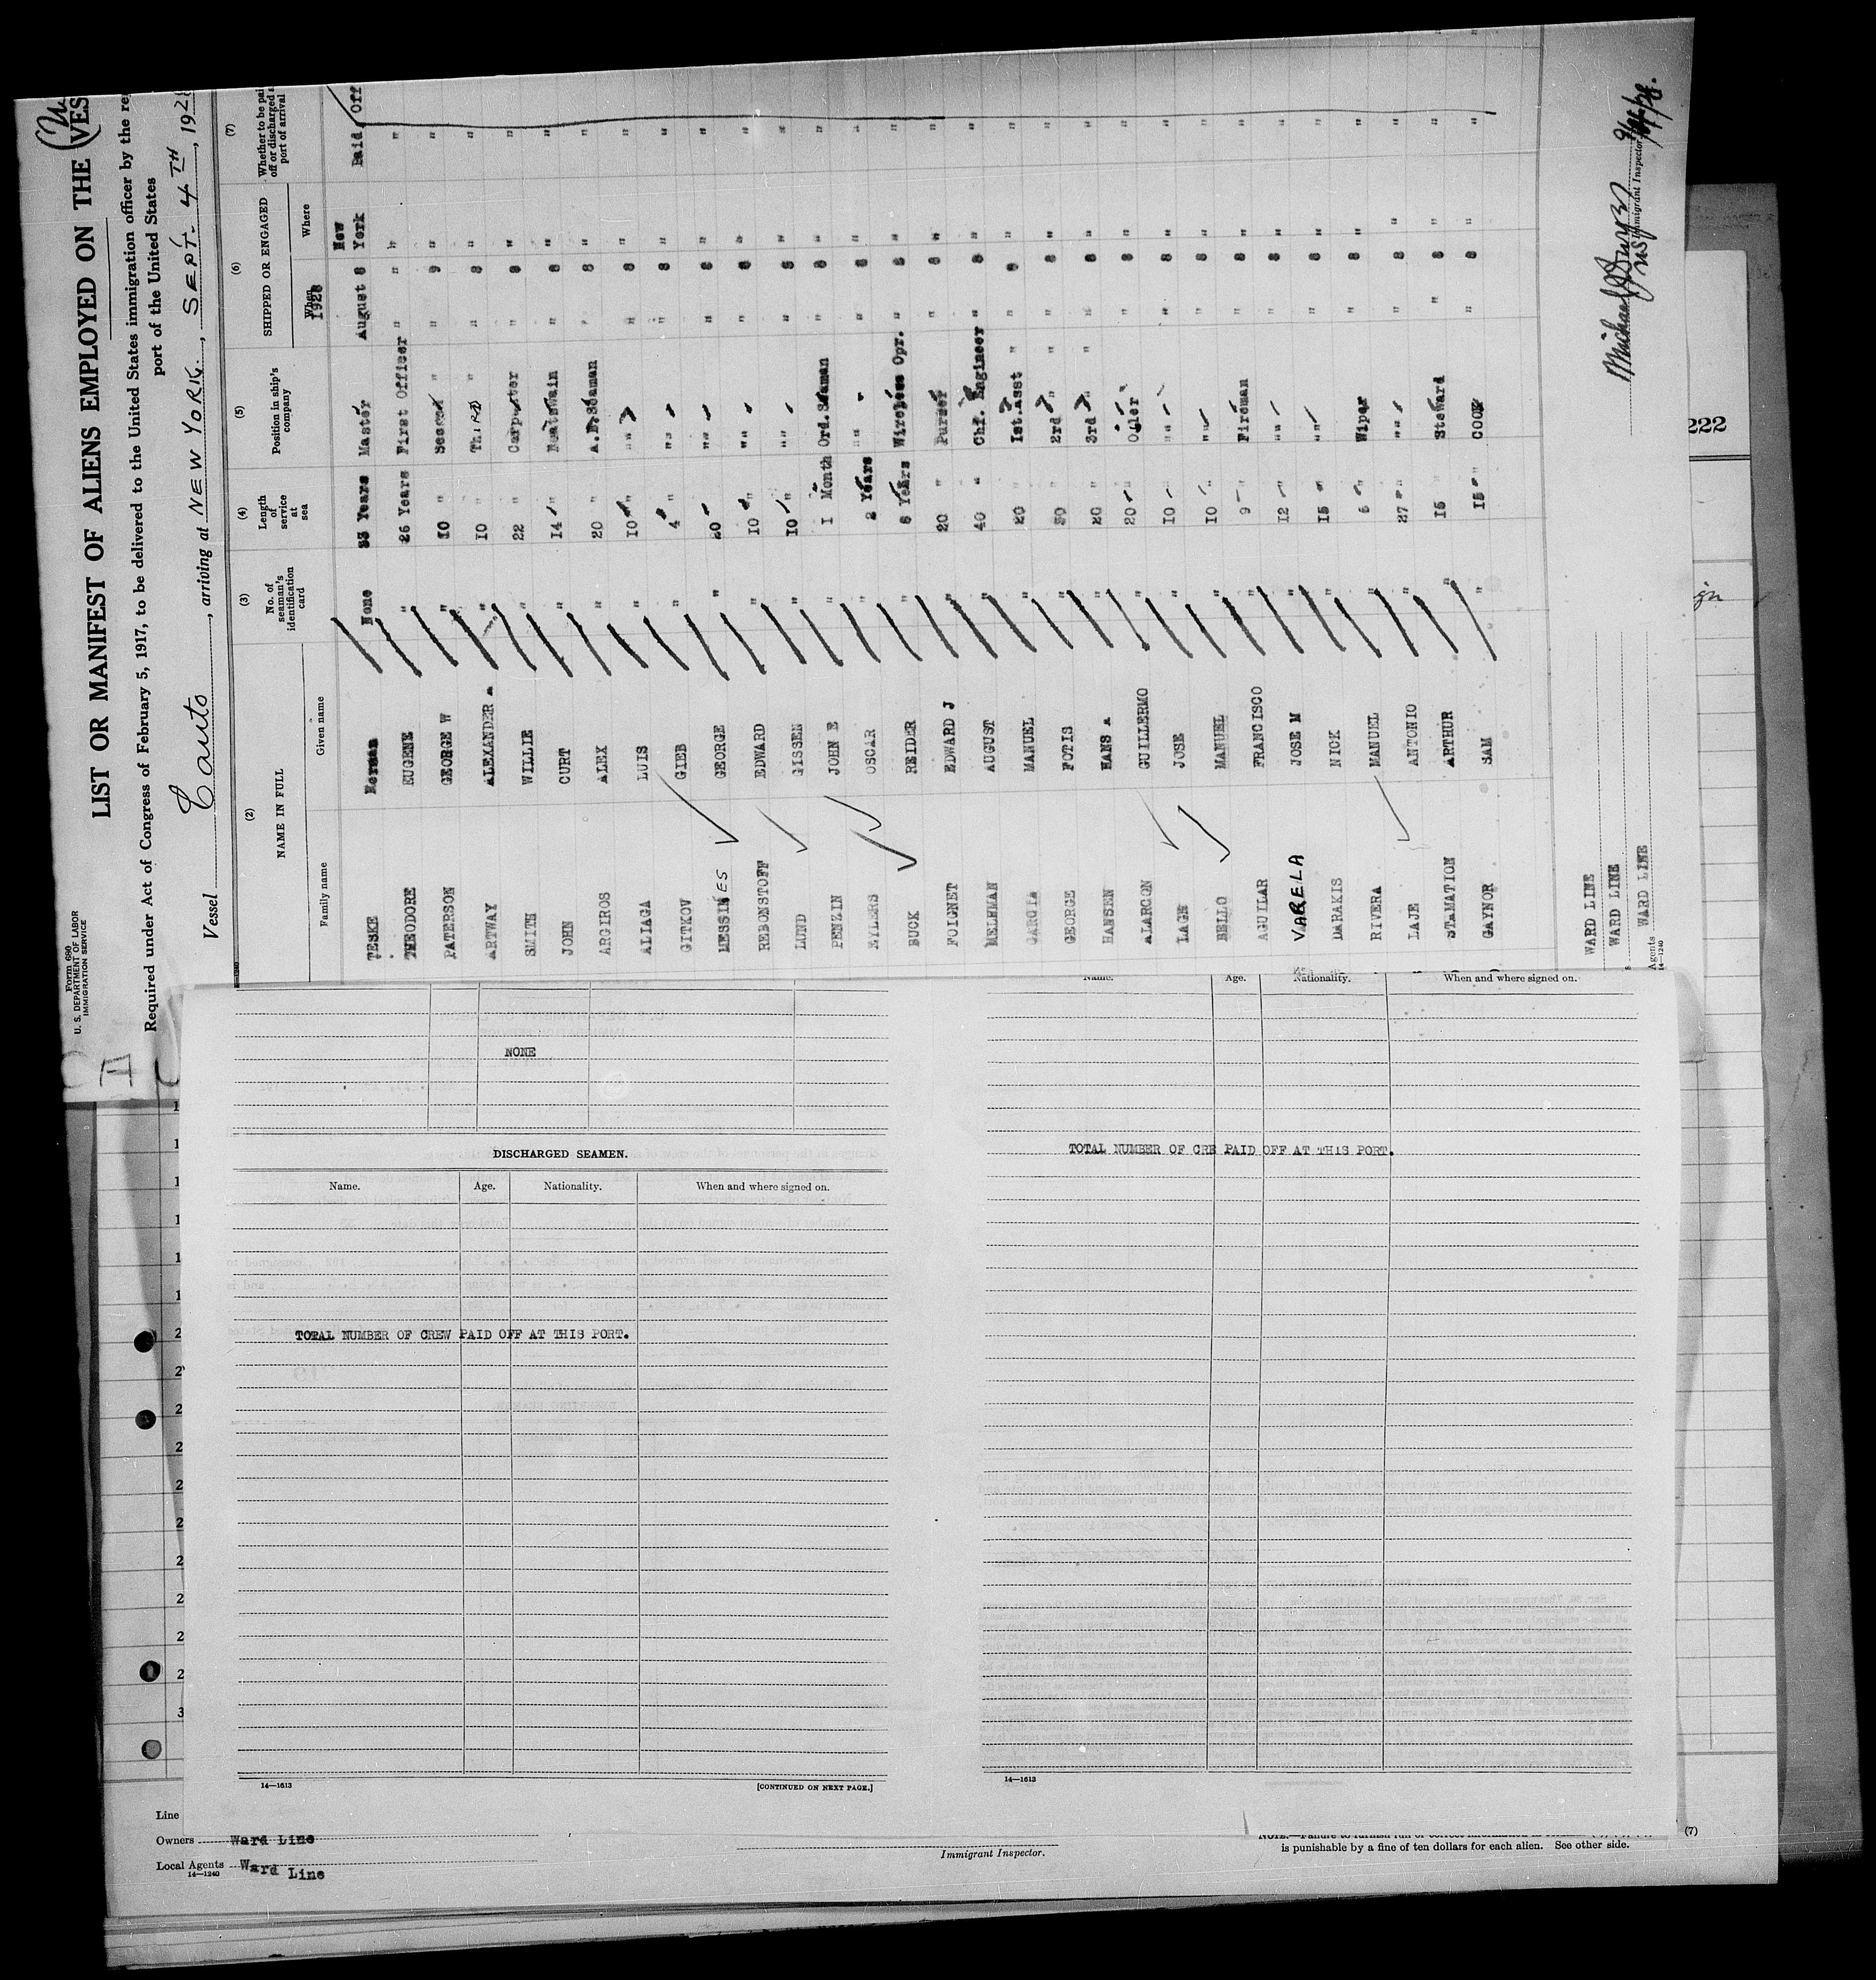 Form 690
U. S. DEPARTMENT OF LABOR
IMMIGRATION SERVICE
LIST OR MANIFEST OF ALIENS EMPLOYED ON THE VES
Required under Act of Congress of February 5, 1917, to be delivered to the United States immigration officer by the re
port of the United States
Vessel Cauto, arriving at NEW YORK., SEPT. 4TH, 192
(2) (3) (4) (5) (6) (7)
NAME IN FULL No. of seaman's identification card Length of service at sea Position in ship's company SHIPPED OR ENGAGED Whether to be paid off or discharged port of arrival
Family name Given name When Where
1928
TESKE Herman None 33 Years Master August 8 New York Paid Off
THEODORE EUGENE " 26 Years First Officer " " " "
PATERSON GEORGE W " 10 " Second " " 9 " "
ARTWAY ALEXANDER A " 10 " THIRD " " 8 " "
SMITH WILLIE " 22 " Carpenter " 9 " "
JOHN CURT " 14 " Boatswain " 8 " "
ARGIROS ALEX " 20 " A.B.Seaman " 8 " "
ALIAGA LUIS " 10 " "" " 8 " "
GITKOV GIEB " 4 " "" " 8 " "
MESSINES GEORGE " 20 " "" " 8 " "
REBONSTOFF EDWARD " 10 " "" " 8 " "
LUND GISSEN " 10 " "" " 8 " "
PENZIN JOHN E " 1 Month Ord.Seaman " 8 " "
EYLERS OSCAR " 2 Years "" " 8 " "
BUCK REIDER " 8 Years Wireless Opr. " 8 " "
FOIGNET EDWARD J " 20 " Purser " 8 " "
MELHMAN AUGUST " 40 " Chf. Engineer " 8 " "
GARCIA MANUEL " 20 " 1st.Asst " " 8 " "
GEORGE FOTIS " 30 " 2rd " " 8 " "
HANSEN HANS A " 20 " 3rd " " 8 " "
ALARCON GUILLERMO " 20 " Oiler " 8 " "
LAGE JOSE " 10 " "" " 8 " "
BELLO MANUEL " 10 " "" " 8 " "
AGUILAR FRANCISCO " 9 " Fireman " 8 " "
VARELA JOSE M " 12 " "" " 8 " "
DARAKIS NICK " 15 " "" " 8 " "
RIVERA MANUEL " 6 " Wiper " 8 " "
LAJE ANTONIO " 27 " "" " 8 " "
STAMATION ARTHUR " 15 " Steward " 8 " "
GAYNOR SAM " 15 " COOK " 8 " "
WARD LINE
WARD LINE
Agents WARD LINE
14—1240
Immigrant Inspector
222
NONE
DISCHARGED SEAMEN.
Name. Age. Nationality. When and where signed on.
TOTAL NUMBER OF CREW PAID OFF AT THIS PORT.
14—1613
[CONTINUED ON NEXT PAGE.]
Name. Age. Nationality. When and where signed on.
TOTAL NUMBER OF CRE PAID OFF AT THIS PORT.
14—1613
Line
Owners Ward Line
Local Agents Ward Line
14—1240
Immigrant Inspector.
is punishable by a fine of ten dollars for each alien. See other side.
(7)